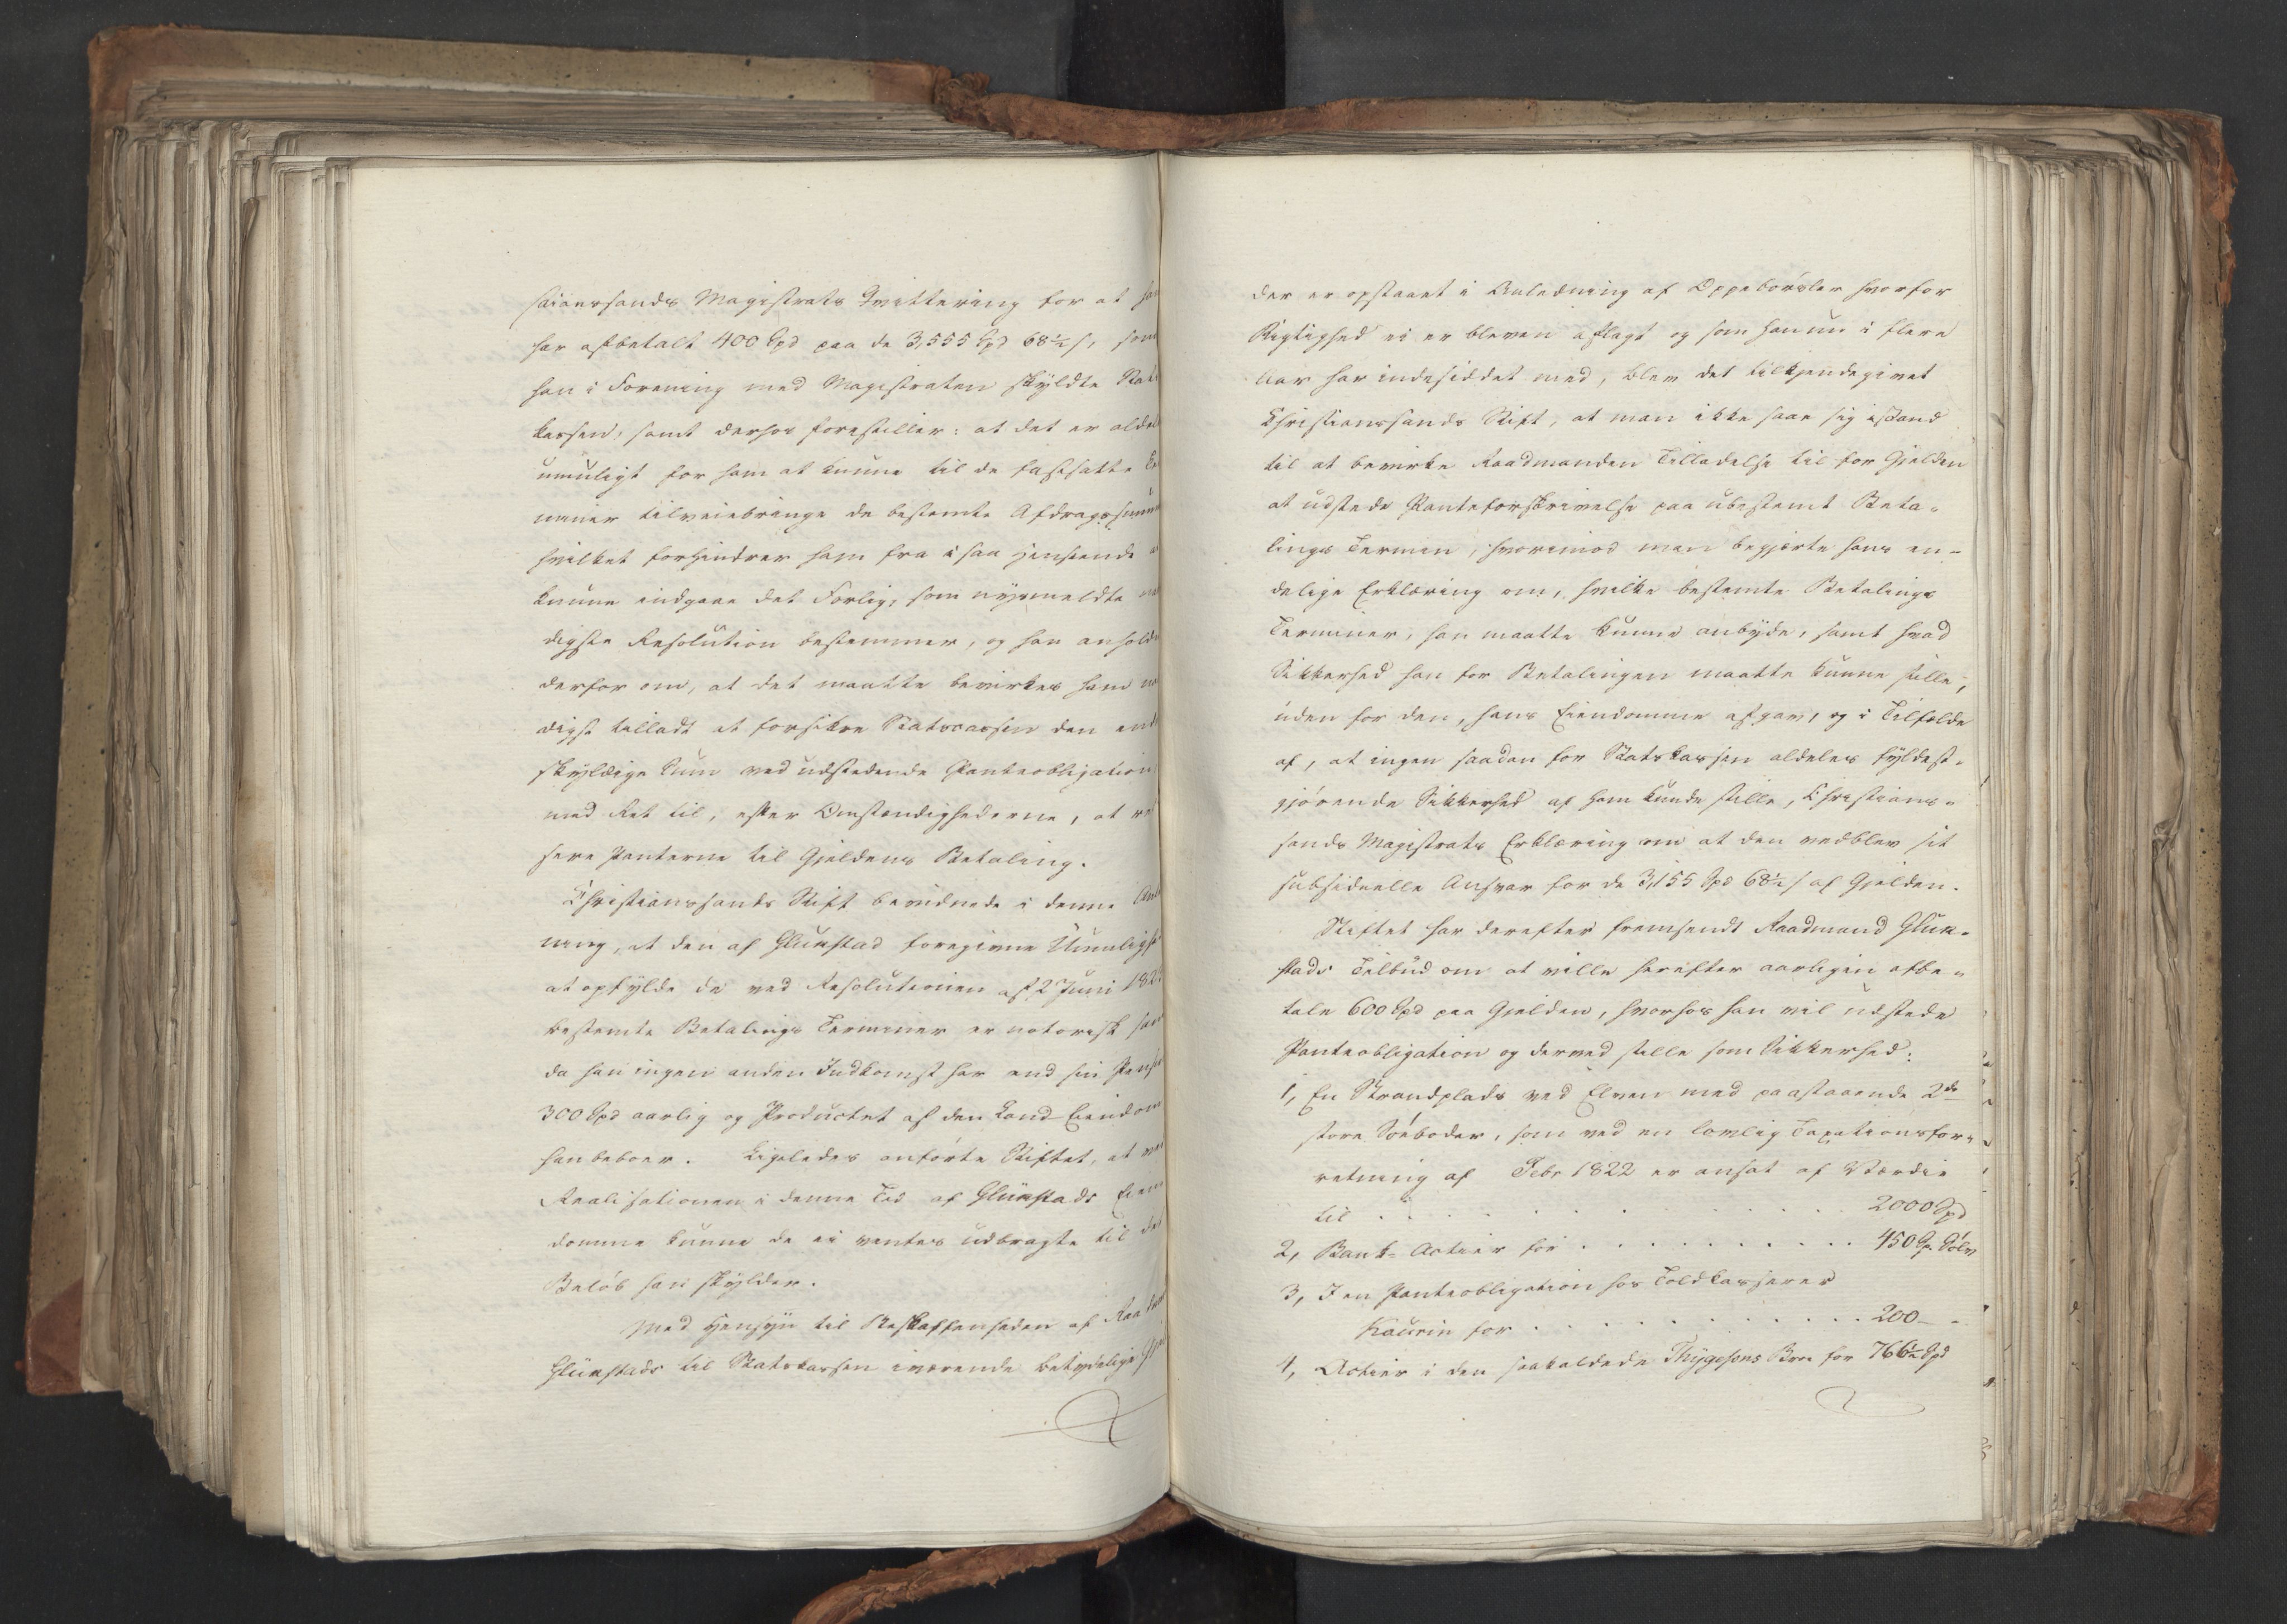 stianssands Magistrats Qvittering for at han
har afbetalt 400 Spd paa de 3,555 Spd 68½ s, som
han i Forening med Magistraten skyldte Stats
kassen, samt derhos forestiller: at det er aldel
umuligt for ham at kunne til de fastsatte Ter
miner tilveiebringe de bestemte Afdragssumm
hvilket forhindrer ham fra i saa Henseende a
kunne indgaae det Forlig, som nysmeldte na
digste Resolution bestemmer, og han anhold
derfor om, at det maatte bevirkes ham na
digst tilladt at forsikre Statscassen den end
skyldige Sum ved udstedende Panteobligation
med Ret til, efter Omstændighederne, at rea
sere Panterne til Gjeldens Betaling.
Christianssands Stift bevidnede i denne Anl
ning, at den af Glückstad foregivne Umuligh
at opfylde de ved Resolutionen af 2 Juni 182
bestemte Betalings Terminer er notorisk sand
da han ingen anden Indkomst har end sin Pens
300 Spd aarlig og Productet af den Land-Eiendom
han beboer. Ligeledes anførte Stiftet, at ved
Realisationen i denne Tid af Glückstads Eien
domme kunne de ei ventes udbragte til det
Beløb han skylder.
Med Hensyn til Beskaffenheden af Raadm
Glückstads til Statskassen værende betydelige Gje
der er opstaaet i Anledning af Oppebørsler hvorfor
Rigtighed ei er bleven aflagt og som han nu i flere
Aar har indesiddet med, blev det tilkjendegivet
Christianssands Stift, at man ikke saae sig istand
til at bevirke Raadmanden Tilladelse til for Gjelden
at udstede Panteforskrivelse paa ubestemt Beta-
lings Termin, hvorimod man begjerte hans en-
delige Erklæring om, hvilke bestemte Betalings
Terminer, han maatte kunne anbyde, samt hvad
Sikkerhed han for Betalingen maatte kunne stille,
uden for den, hans Eiendomme afgav, og i Tilfælde
af, at ingen saadan for Statskassen aldeles fyldest-
gjørende Sikkerhed af ham kunde stilles, Christians-
sands Magistrats Erklæring om at den vedblev sit
subsidiaire Ansvar for de 3,155 Spd 68½ s af Gjelden.
Stiftet har derefter fremsendt Raadmand Glück-
stads Tilbud om at ville herefter aarligen afbe-
tale 600 Spd paa Gjelden, hvorhos han vil udstede
Panteobligation og derved stille som Sikkerhed:
1, En Strandplads ved Elven med paastaaende 2de
store Søeboder, som ved en lovlig Taxationsfor-
retning af Febr 1822 er ansat af Værdie
til . . . . . . . . . . 2000 Spd
2, Bank-Actier for . . . . . . . . . . 450 Sp. Sølv
3, I en Panteobligation hos Toldkasserer
Kaurin for . . . . . . . . . . 200 - -
4, Actier i den saakaldede Thygesons Broe for 766½ Spd